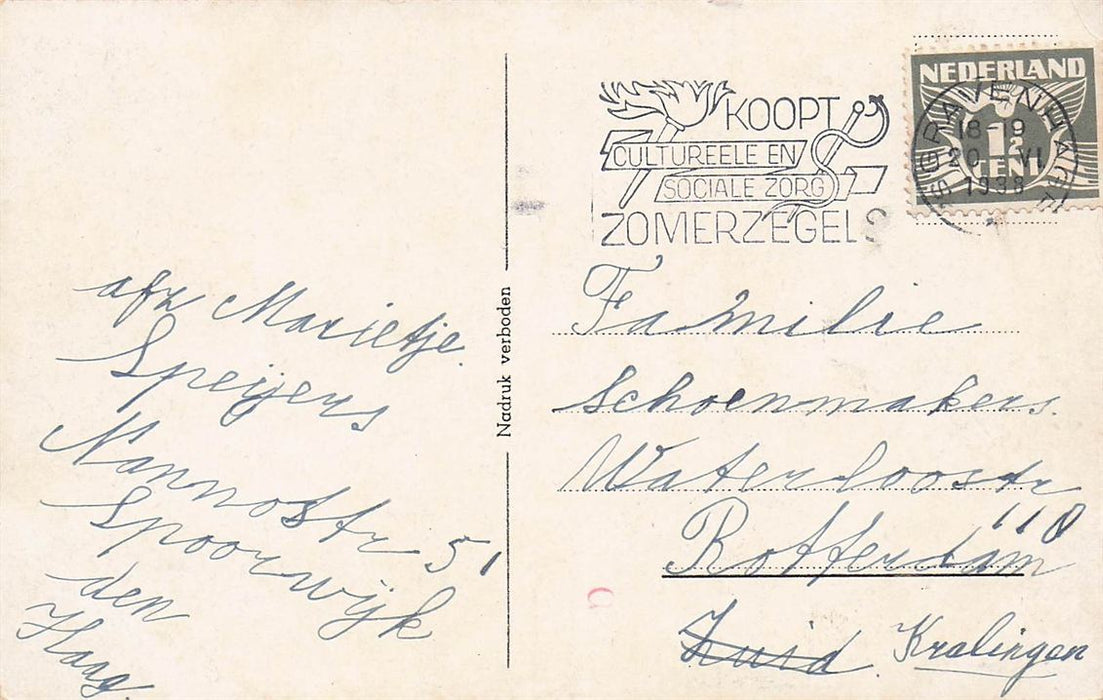 afz Marietje
Speijers
Nannostr 51
Spoorwijk
den
Haag.
Nadruk verboden
KOOPT
CULTUREELE EN
SOCIALE ZORG
ZOMERZEGELS
NEDERLAND
1½
CENT
'SGRAVENHAGE
18-19
20 VI
1938
Familie
Schoenmakers.
Waterloostr
110
Rotterdam
Zuid Kralingen